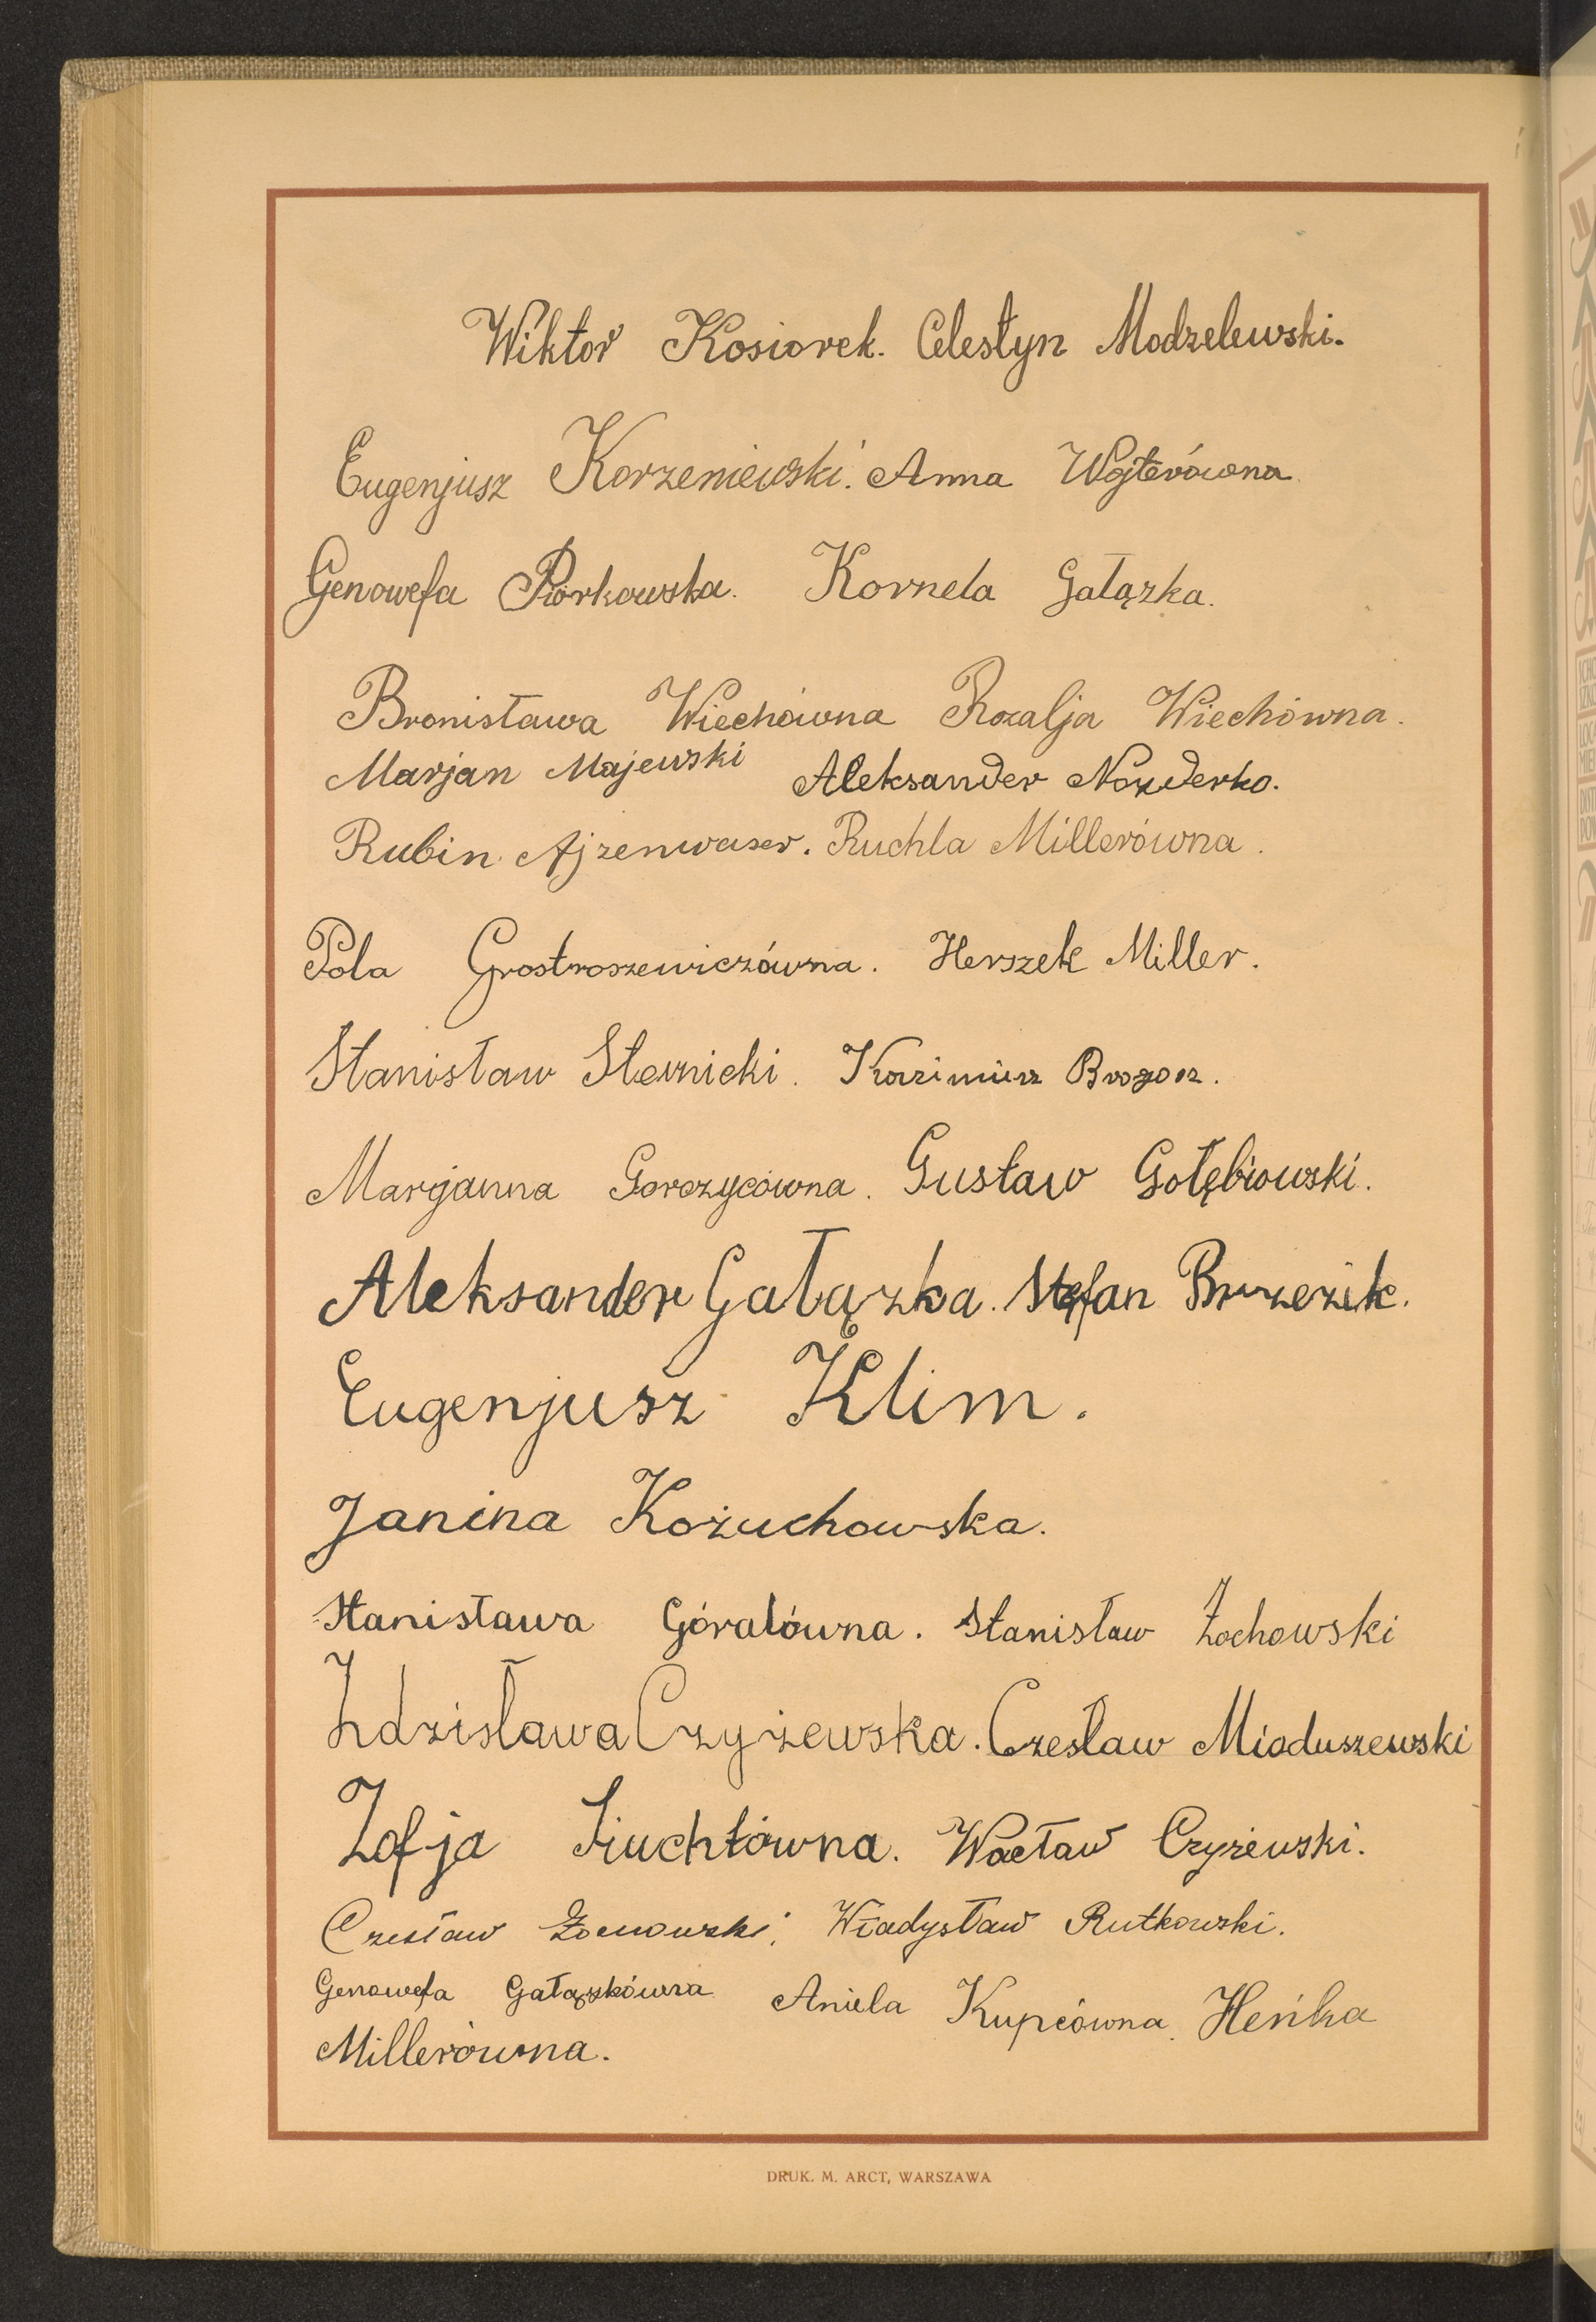 Wiktor Kosiorek. Celestyn Modzelewski.
Eugenjusz Korzeniewski. Anna Wojterówna
Genowefa Piórkowska. Kornela Gałązka.
Bronisława Wiechówna Rozalja Wiechówna.
Marjan Majewski Aleksander Nozderko.
Rubin Ajzenwaser. Ruchla Millerówna.
Pola Grostroszewiczówna. Herszek Miller.
Stanisław Sternicki. Kazimierz
Marjanna Gorczycówna. Gustaw Gołębiowski.
Aleksander Gałązka. Stefan Brzezik.
Eugenjusz Klim.
Janina Kożuchowska.
Stanisława Góralówna. Stanisław Żochowski
Zdzisława Czyżewska. Czesław Mioduszewski
Zofja Siuchtówna. Wacław Czyżewski.
Czesław Władysław Rutkowski.
Genowefa Gałązkówna Aniela Kupcówna. Heńka
Millerówna.
DRUK. M. ARCT, WARSZAWA